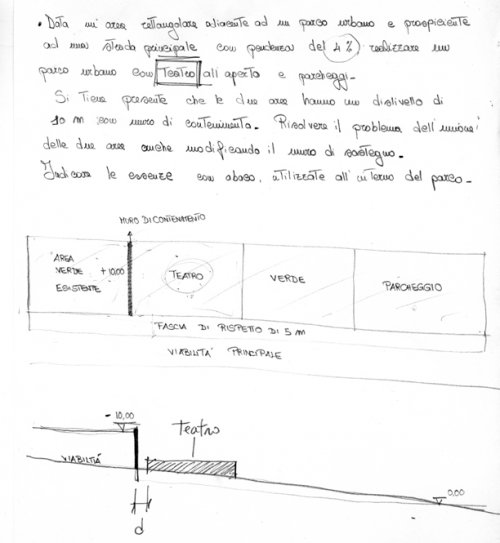 • Data un'area rettangolare adiacente ad un parco urbano e prospiciente
ad una strada principale con pendenza del 4% realizzare un
parco urbano con Teatro all'aperto e parcheggi.
Si tiene presente che le due aree hanno un dislivello di
10 m con muro di contenimento. Risolvere il problema dell'unione
delle due aree anche modificando il muro di sostegno.
Indicare le essenze con abaco, utilizzate all'interno del parco.
MURO DI CONTENIMENTO
AREA
VERDE +10,00
ESISTENTE
TEATRO
VERDE
PARCHEGGIO
FASCIA DI RISPETTO DI 5 m
VIABILITA' PRINCIPALE
- 10,00
Teatro
VIABILTIA'
0,00
d